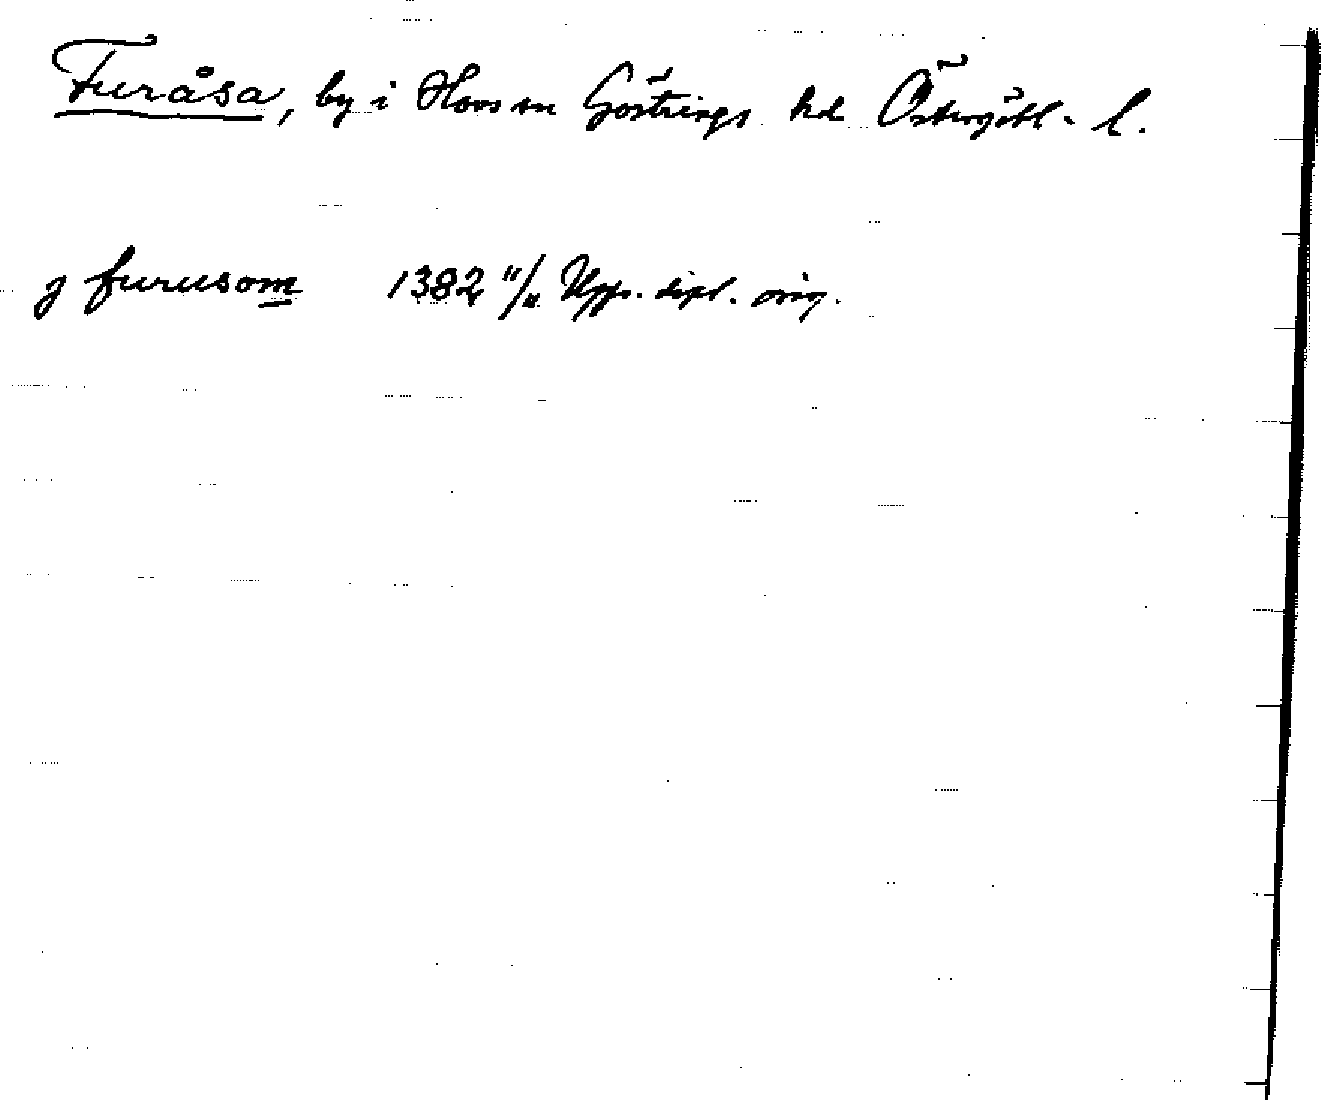 Furåsa, by i Hovs sn Göstrings hd Östergötl. l.
j furusom 1382 11/11 Upps. dipl. orig.